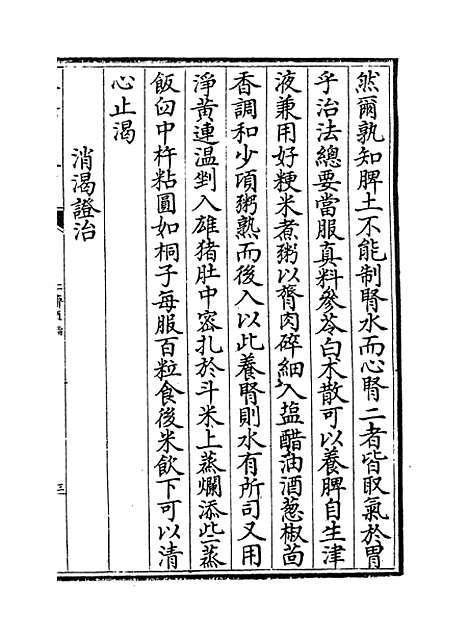 然爾孰知脾土不能制腎水而心腎二者皆取氣於胃
乎治法總要當服真料參苓白朮散可以養脾自生津
液兼用好粳米煮粥以膂肉碎細入塩醋油酒葱椒茴
香調和少頃粥熟而後入以此養腎則水有所司又用
淨黄連温剉入雄猪肚中宻扎於斗米上蒸爛添些蒸
飯臼中杵粘圓如桐子每服百粒食後米飲下可以清
心止渴
消渴證治
三